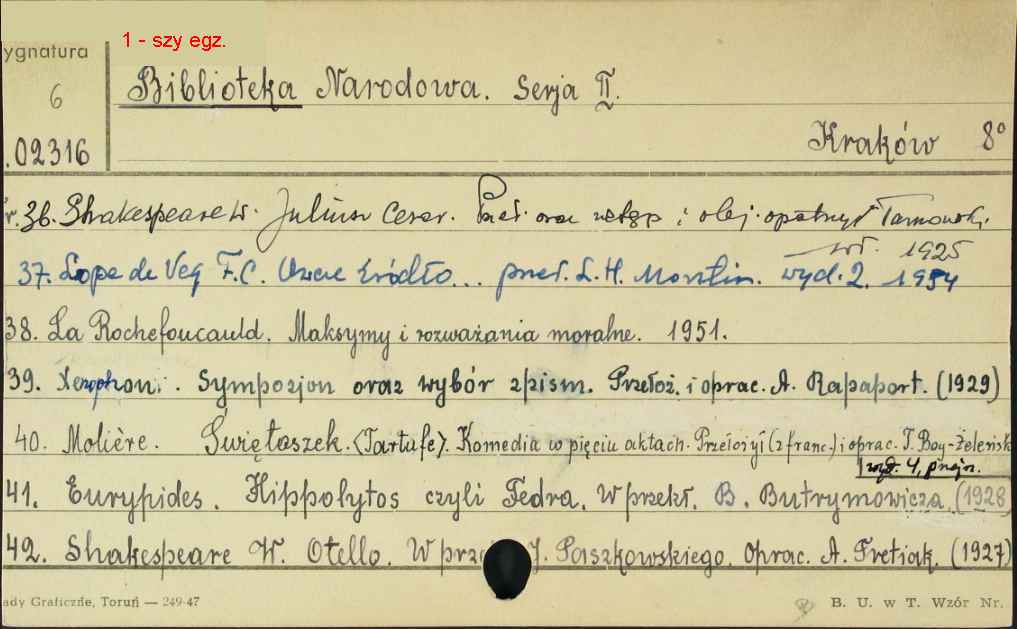 1 - szy egz.
ygnatura
6
.02316
Biblioteka Narodowa. Serja II.
Kraków 8°
r. 36. Shakespeare W. Juliusz Cezar. Przeł. oraz wstęp i objaś. opatrzył Tarnowski.
1925
37. Lope de Veg F.C. Owcze źródło... przeł. L.H. Morstin. wyd. 2. 1954
38. La Rochefoucauld. Maksymy i rozważania moralne. 1951.
39. Xenophon. Sympozjon oraz wybór z pism. Przełoż. i oprac. A. Rapaport. (1929)
40. Molière. Świętoszek. (Tartufe). Komedia w pięciu aktach. Przełożył (z franc.) i oprac. T. Boy-Żeleńsk
wyd. 4, przejrz.
41. Eurypides. Hippolytos czyli Fedra. W przekł. B. Butrymowicza. (1928)
42. Shakespeare W. Otello. W prze J. Paszkowskiego. Oprac. A. Tretiak. (1927)
ady Graficzne, Toruń — 249-47
B. U. w T. Wzór Nr.